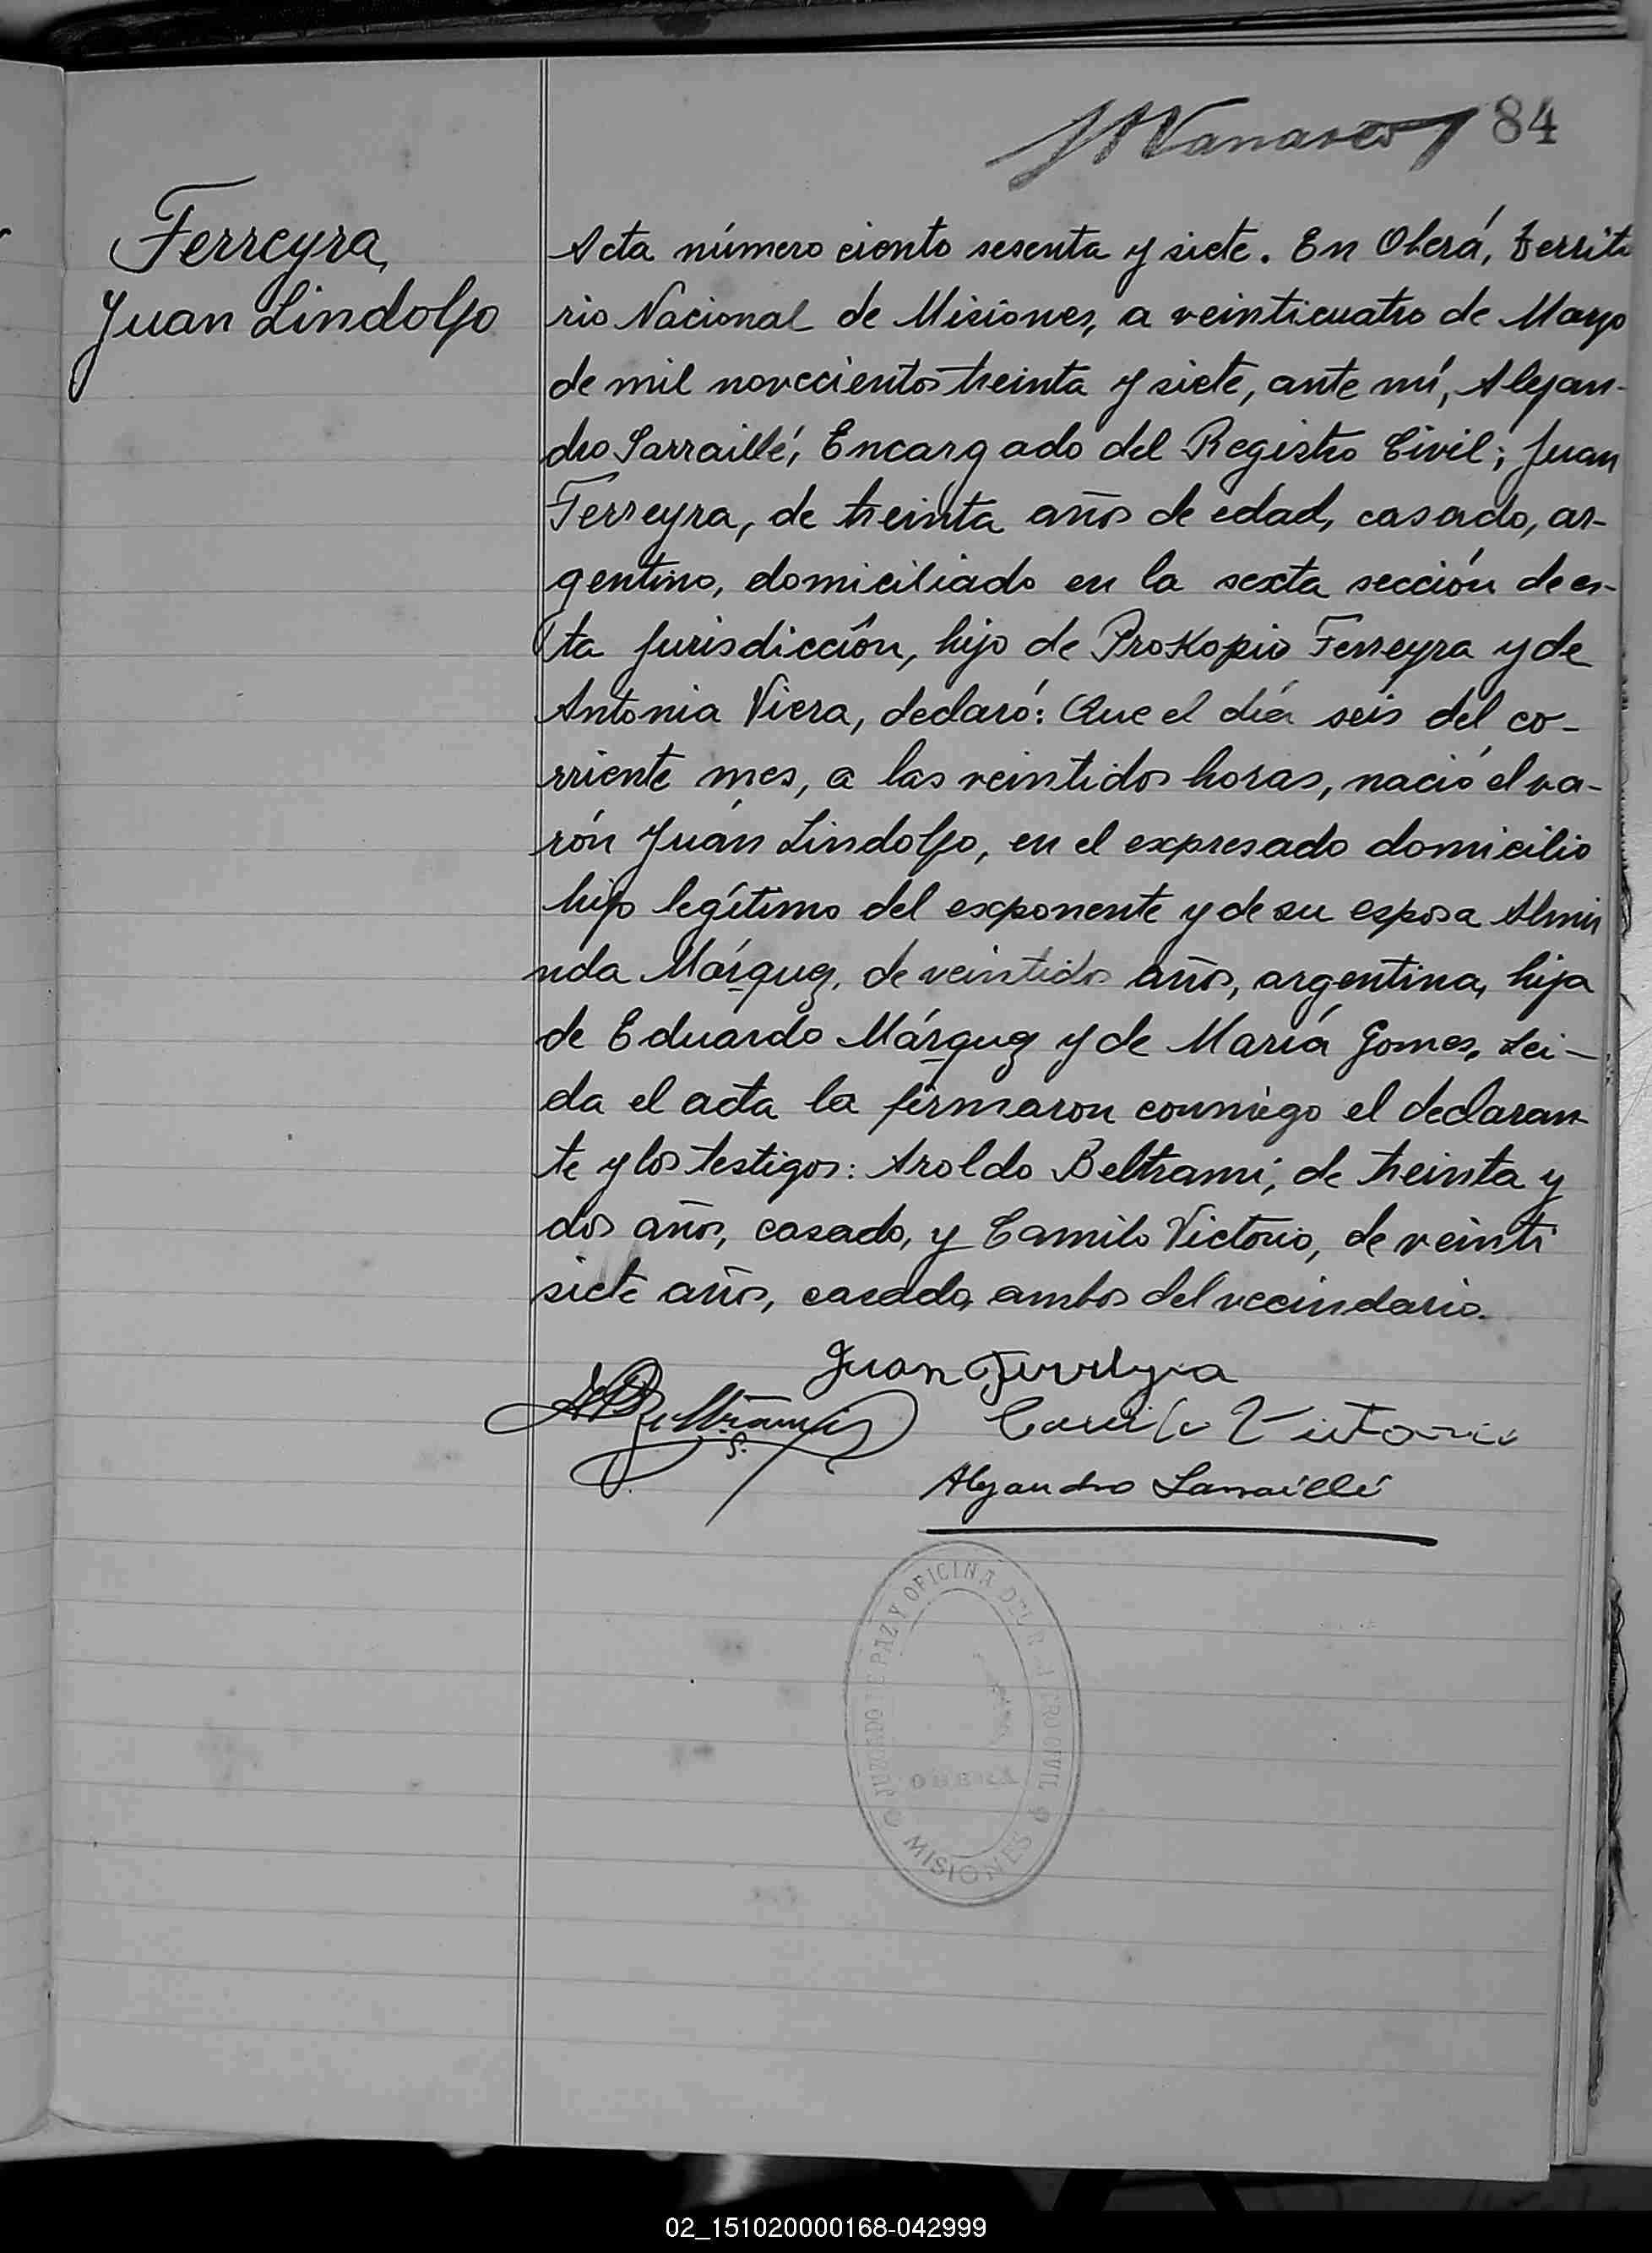 84
Ferreyra,
Juan Lindolfo
Acta número ciento sesenta y siete. En Oberá, Territo
rio Nacional de Misiones, a veinticuatro de Mayo
de mil novecientos treinta y siete, ante mí, Alejan-
dro Sarraillé, Encargado del Registro Civil; Juan
Ferreyra, de treinta años de edad, casado, ar-
gentino, domiciliado en la sexta sección de es-
ta jurisdicción, hijo de Prokopio Ferreyra y de
Antonia Viera, declaró: Que el día seis del co-
rriente mes, a las veintidos horas, nació el va-
rón Juan Lindolfo, en el expresado domicilio
hijo legítimo del exponente y de su esposa Almi
nda Márquz, de veintidos años, argentina, hija
de Eduardo Márquz y de María Gomes. Lei-
da el acta la firmaron conmigo el declaran-
te y los testigos: Aroldo Beltrami, de treinta y
dos años, casado, y Camilo Victorio, de veinti
siete años, casado, ambos del vecindario.
Juan Ferreyra
ABeltrami Camilo Victorio
Alejandro Sarraillé
JUZGADO DE PAZ Y OFICINA DEL REGISTRO CIVIL
OBERA
MISIONES
02_151020000168-042999